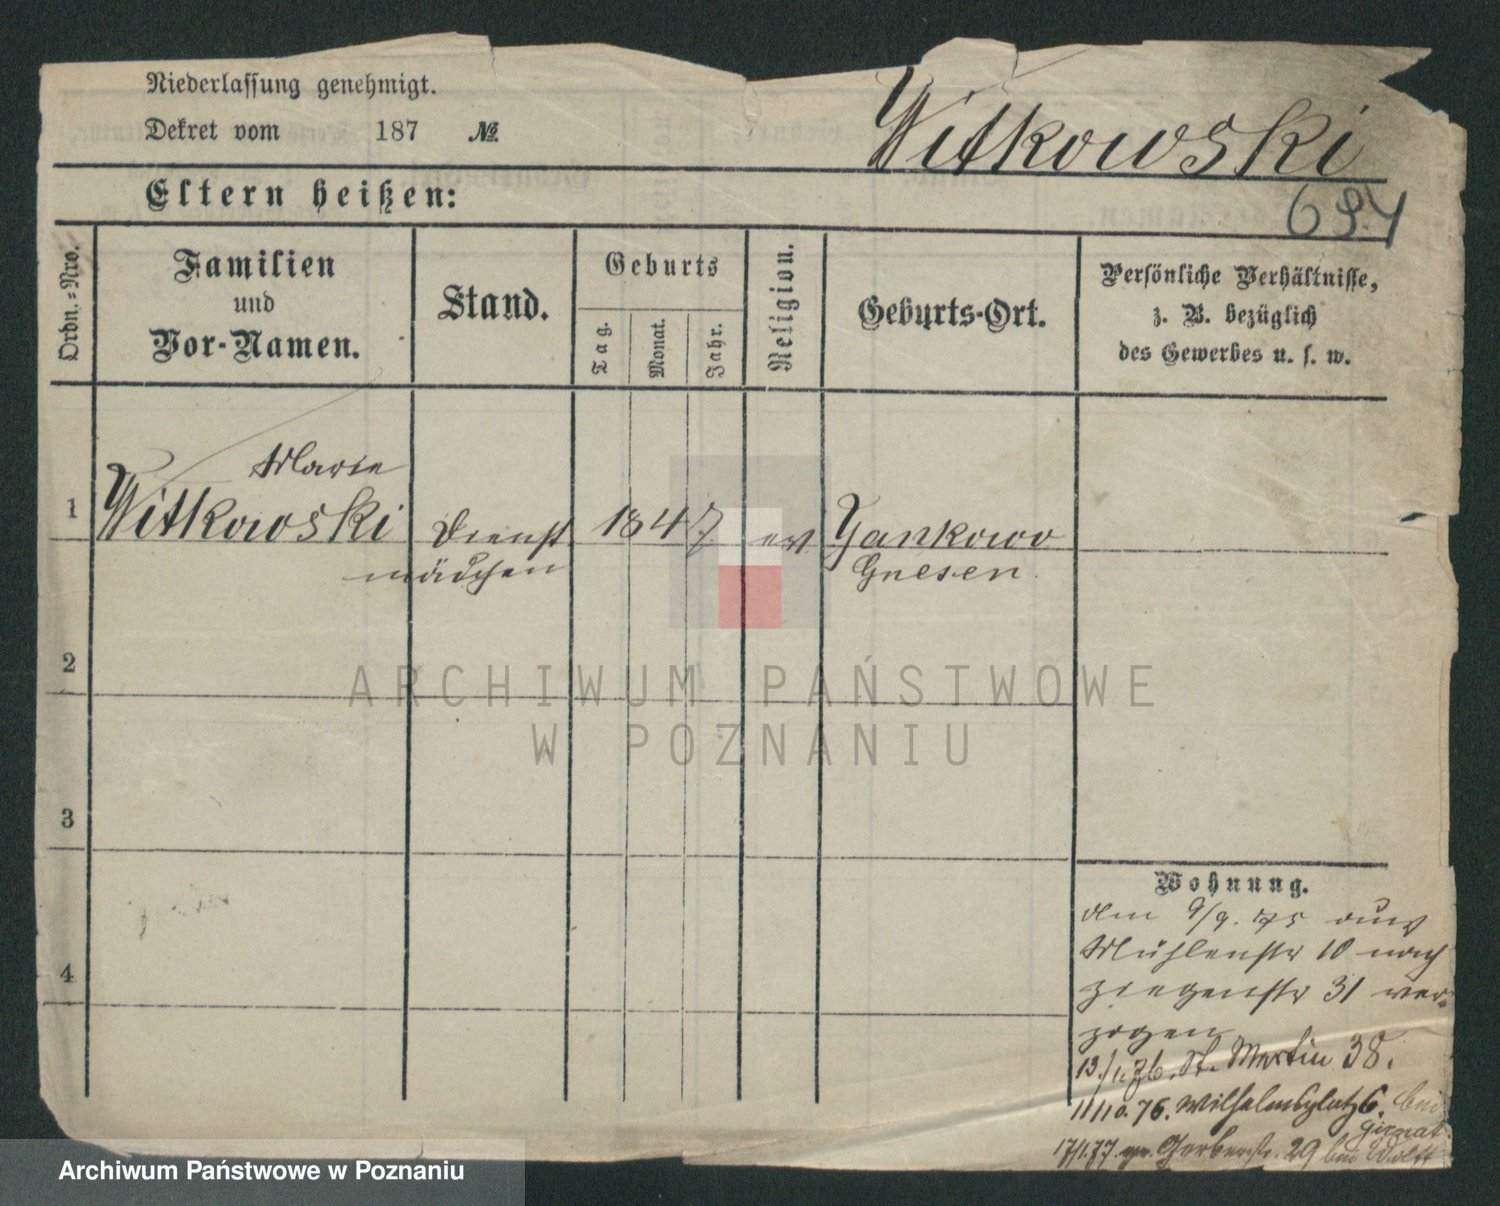 Niederlassung genehmigt.
Dekret vom 187 №
Witkowski
694
Eltern heißen:
Ordn.-Nro.
Familien und Vor-Namen.
Stand.
Geburts
Tag.
Monat.
Jahr.
Religion.
Geburts-Ort.
Persönliche Verhältnisse,
z. B. bezüglich
des Gewerbes u. s. w.
Marie
1 Witkowski Dienst 1847 ev Yankowo
mädchen Gnesen
2
3
4
Wohnung.
Am 9/9. 75 aus
Mühlenstr 10 nach
Ziegenstr 31 ver-
zogen
13./1. 76. St. Martin 38.
11/10. 76. Wilhelmsplatz 6. bei
17/1.77. Gerberstr. 29 bei Wolff
ARCHIWUM PAŃSTWOWE
W POZNANIU
Archiwum Państwowe w Poznaniu